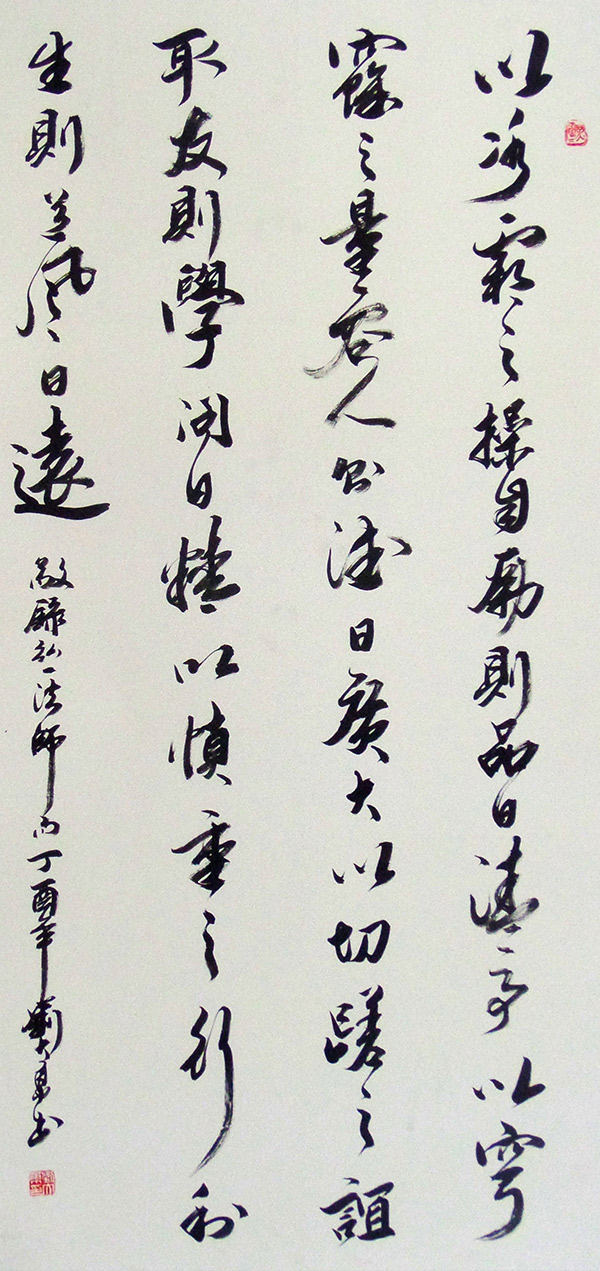 以冰霜之操自勵則品日清高以穹
窿之量容人則德日廣大以切磋之誼
取友則學問日精以慎重之行利
生則道風日遠
敬錄弘一法師句丁酉年劉書